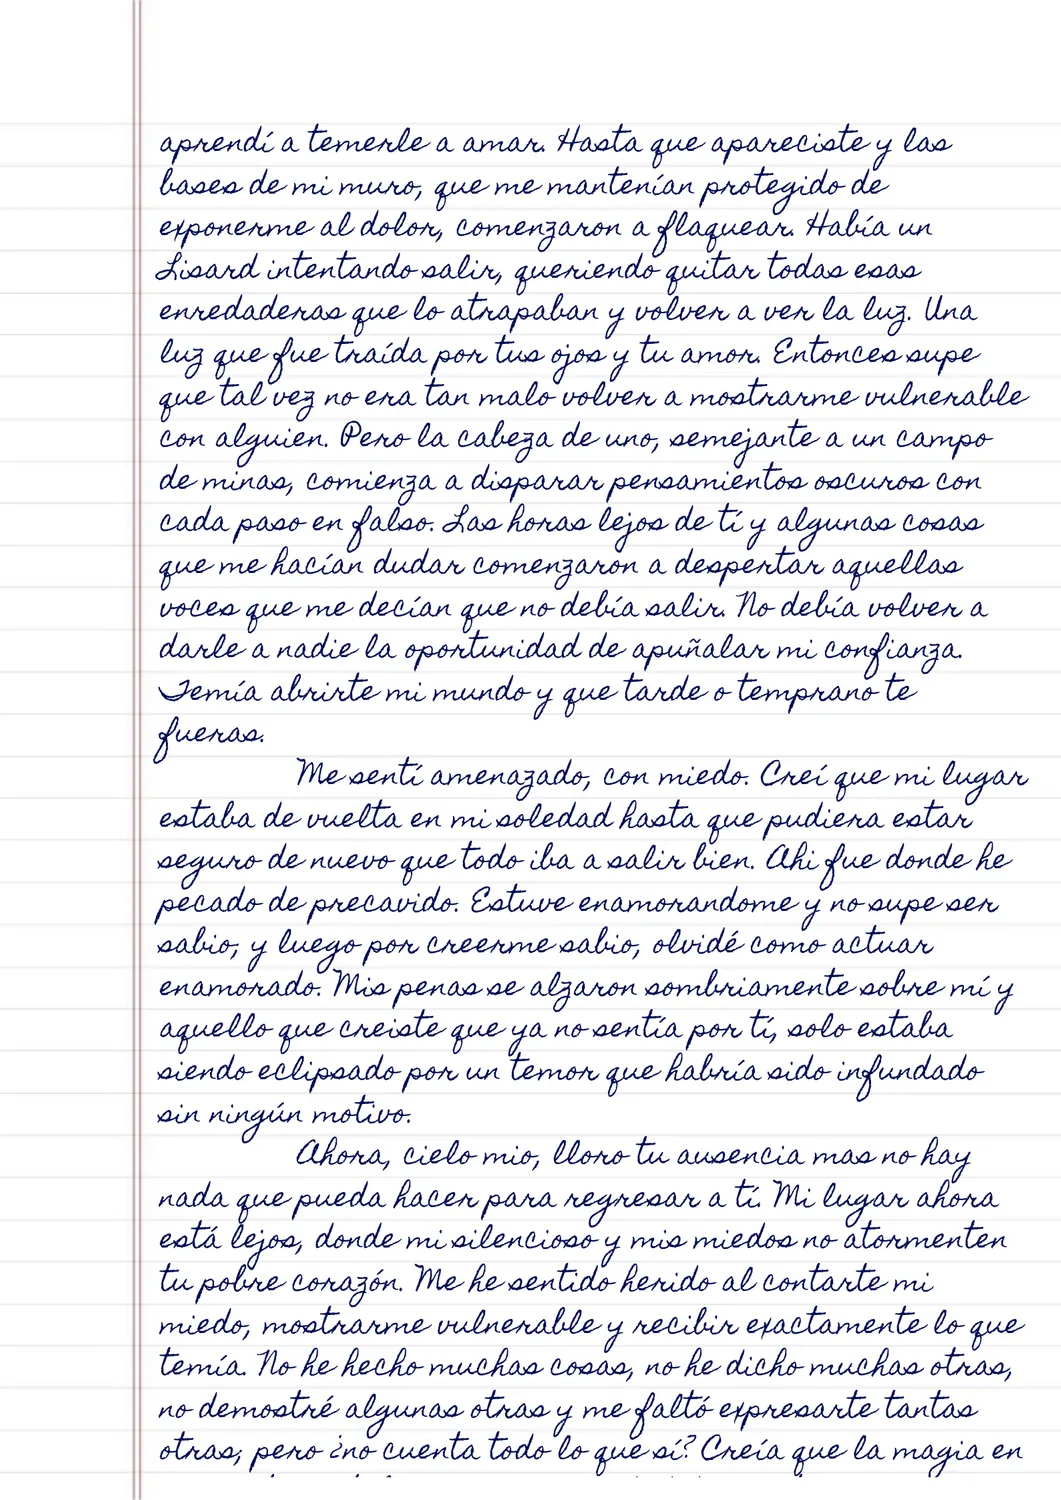 aprendí a temerle a amar. Hasta que apareciste y las
bases de mi muro, que me mantenían protegido de
exponerme al dolor, comenzaron a flaquear. Había un
Lisard intentando salir, queriendo quitar todas esas
enredaderas que lo atrapaban y volver a ver la luz. Una
luz que fue traída por tus ojos y tu amor. Entonces supe
que tal vez no era tan malo volver a mostrarme vulnerable
con alguien. Pero la cabeza de uno, semejante a un campo
de minas, comienza a disparar pensamientos oscuros con
cada paso en falso. Las horas lejos de tí y algunas cosas
que me hacían dudar comenzaron a despertar aquellas
voces que me decían que no debía salir. No debía volver a
darle a nadie la oportunidad de apuñalar mi confianza.
Temía abrirte mi mundo y que tarde o temprano te
fueras.
Me sentí amenazado, con miedo. Creí que mi lugar
estaba de vuelta en mi soledad hasta que pudiera estar
seguro de nuevo que todo iba a salir bien. Ahi fue donde he
pecado de precavido. Estuve enamorandome y no supe ser
sabio, y luego por creerme sabio, olvidé como actuar
enamorado. Mis penas se alzaron sombriamente sobre mí y
aquello que creiste que ya no sentía por tí, solo estaba
siendo eclipsado por un temor que habría sido infundado
sin ningún motivo.
Ahora, cielo mio, lloro tu ausencia mas no hay
nada que pueda hacer para regresar a tí. Mi lugar ahora
está lejos, donde mi silencioso y mis miedos no atormenten
tu pobre corazón. Me he sentido herido al contarte mi
miedo, mostrarme vulnerable y recibir exactamente lo que
temía. No he hecho muchas cosas, no he dicho muchas otras,
no demostré algunas otras y me faltó expresarte tantas
otras, pero ¿no cuenta todo lo que sí? Creía que la magia en